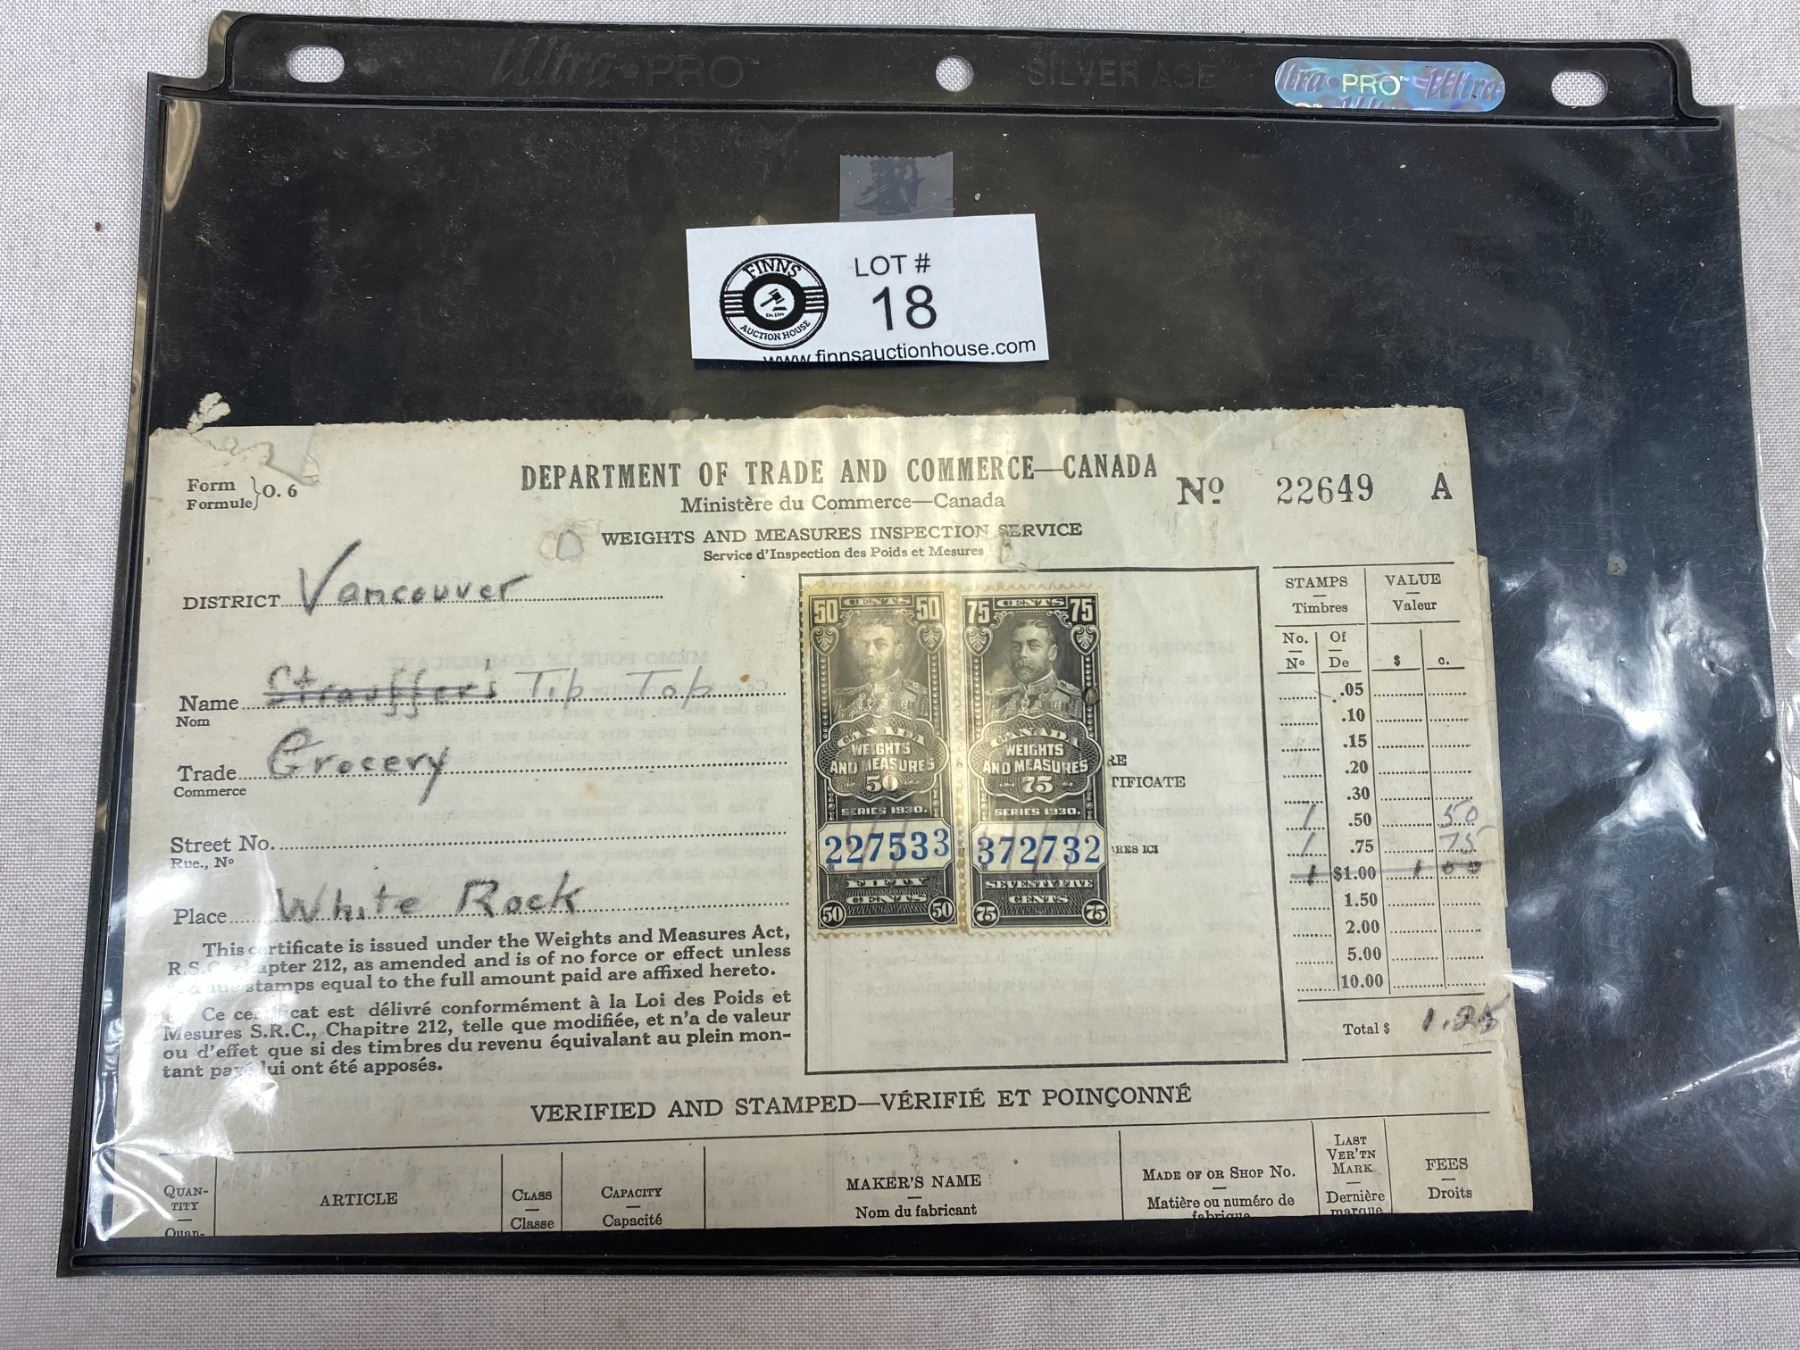 Ultra•PRO™
SILVER AGE
PRO™
FINNS
AUCTION HOUSE
LOT #
18
www.finnsauctionhouse.com
Form
Formule} O. 6
DEPARTMENT OF TRADE AND COMMERCE—CANADA
Ministère du Commerce—Canada
Nº 22649 A
WEIGHTS AND MEASURES INSPECTION SERVICE
Service d'Inspection des Poids et Mesures
DISTRICT Vancouver
Name Strauffer's Tip Top
Nom
Trade Grocery
Commerce
Street No.
Rue., Nº
Place White Rock
This certificate is issued under the Weights and Measures Act,
R.S.C. Chapter 212, as amended and is of no force or effect unless
stamps equal to the full amount paid are affixed hereto.
Ce certificat est délivré conformément à la Loi des Poids et
Mesures S.R.C., Chapitre 212, telle que modifiée, et n'a de valeur
ou d'effet que si des timbres du revenu équivalant au plein mon-
tant payé lui ont été apposés.
50 CENTS 50
CANADA
WEIGHTS
AND MEASURES
50
SERIES 1930.
227533
FIFTY
CENTS
50 50
75 CENTS 75
CANADA
WEIGHTS
AND MEASURES
75
SERIES 1930.
372732
SEVENTY FIVE
CENTS
75 75
RE
TIFICATE
RES ICI
STAMPS VALUE
Timbres Valeur
No. Of
Nº De $ c.
.05
.10
.15
.20
.30
1 .50 50
1 .75 75
1 $1.00 1 00
1.50
2.00
5.00
10.00
Total $ 1.25
VERIFIED AND STAMPED—VÉRIFIÉ ET POINÇONNÉ
QUAN-
TITY
Quan-
ARTICLE
CLASS
Classe
CAPACITY
Capacité
MAKER'S NAME
Nom du fabricant
MADE OF OR SHOP NO.
Matière ou numéro de
fabrique
LAST
VER'TN
MARK
Dernière
marque
FEES
Droits